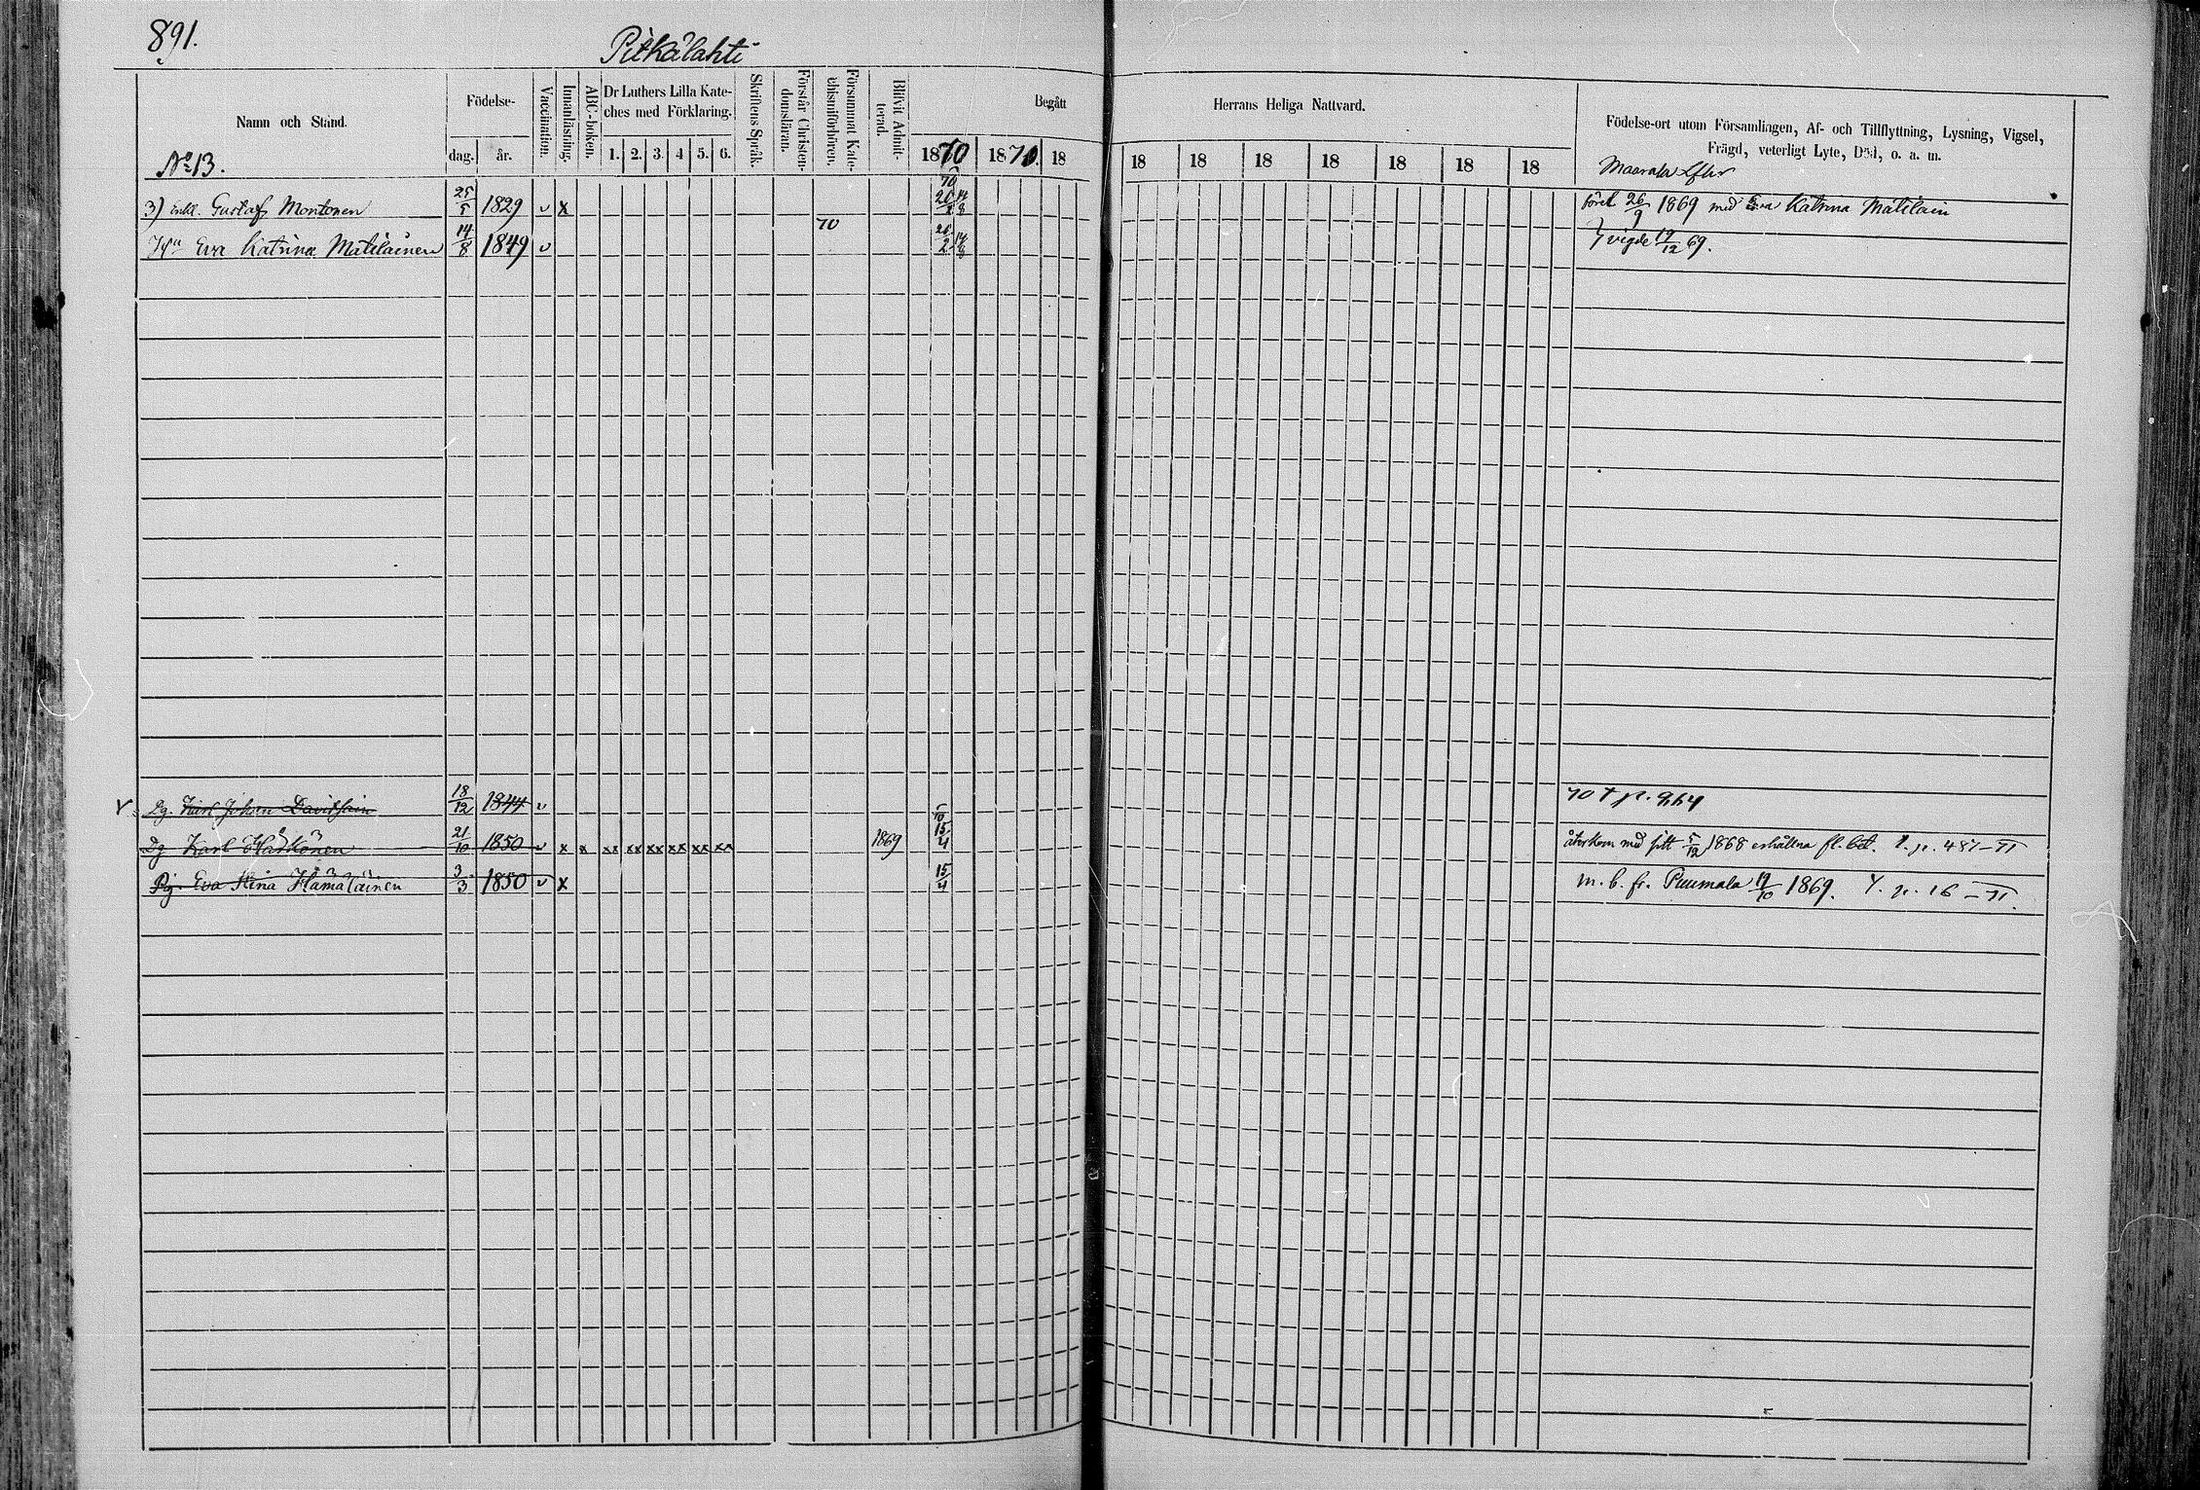 891.
Pitkälahti
Namn och Stånd.
Födelse-
dag. år.
Vaccination.
Innanläsning.
ABC-boken.
Dr Luthers Lilla Kate-
ches med Förklaring.
1. 2. 3. 4 5. 6.
Skriftens Språk.
Förstår Christen-
domsläran.
Försummat Kate-
chismiförhören.
Blifvit Admit-
terad.
Begått
Herrans Heliga Nattvard.
1870 1871. 18 18 18 18 18 18 18 18
Födelse-ort utom Församlingen, Af- och Tillflyttning, Lysning, Vigsel,
Frägd, veterligt Lyte, Död, o. a. m.
No 13.
3) inh. Gustaf Montonen 25/5 1829 v x 26/2 14/8 26/9 1869 med Eva Katrina Matilain
Hu Eva Katrina Matilainen 14/8 1849 v 70 26/2 14/8 vigde 19/12 69.
Dg. Karl Johan Davidsain 18/12 1844 v 70 † p.
Dg Karl 21/10 1850 v x x xx xx xx xx xx xx 1869 15/4 återkom med sitt 5/12 1868 erhållna fl. bet. p. 481-II
Pig. Eva Stina Hämäläinen 3/3 1850 v x 15/4 m. b. fr. Puumala 19/10 1869. p. 16 - II.